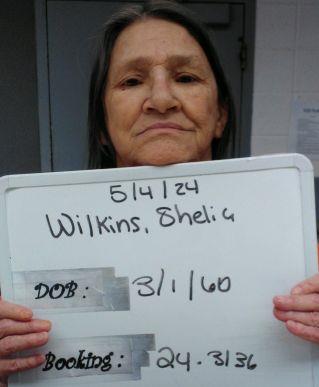 5/4/24
Wilkins, Shelia
DOB: 3/1/60
Booking: 24-3136